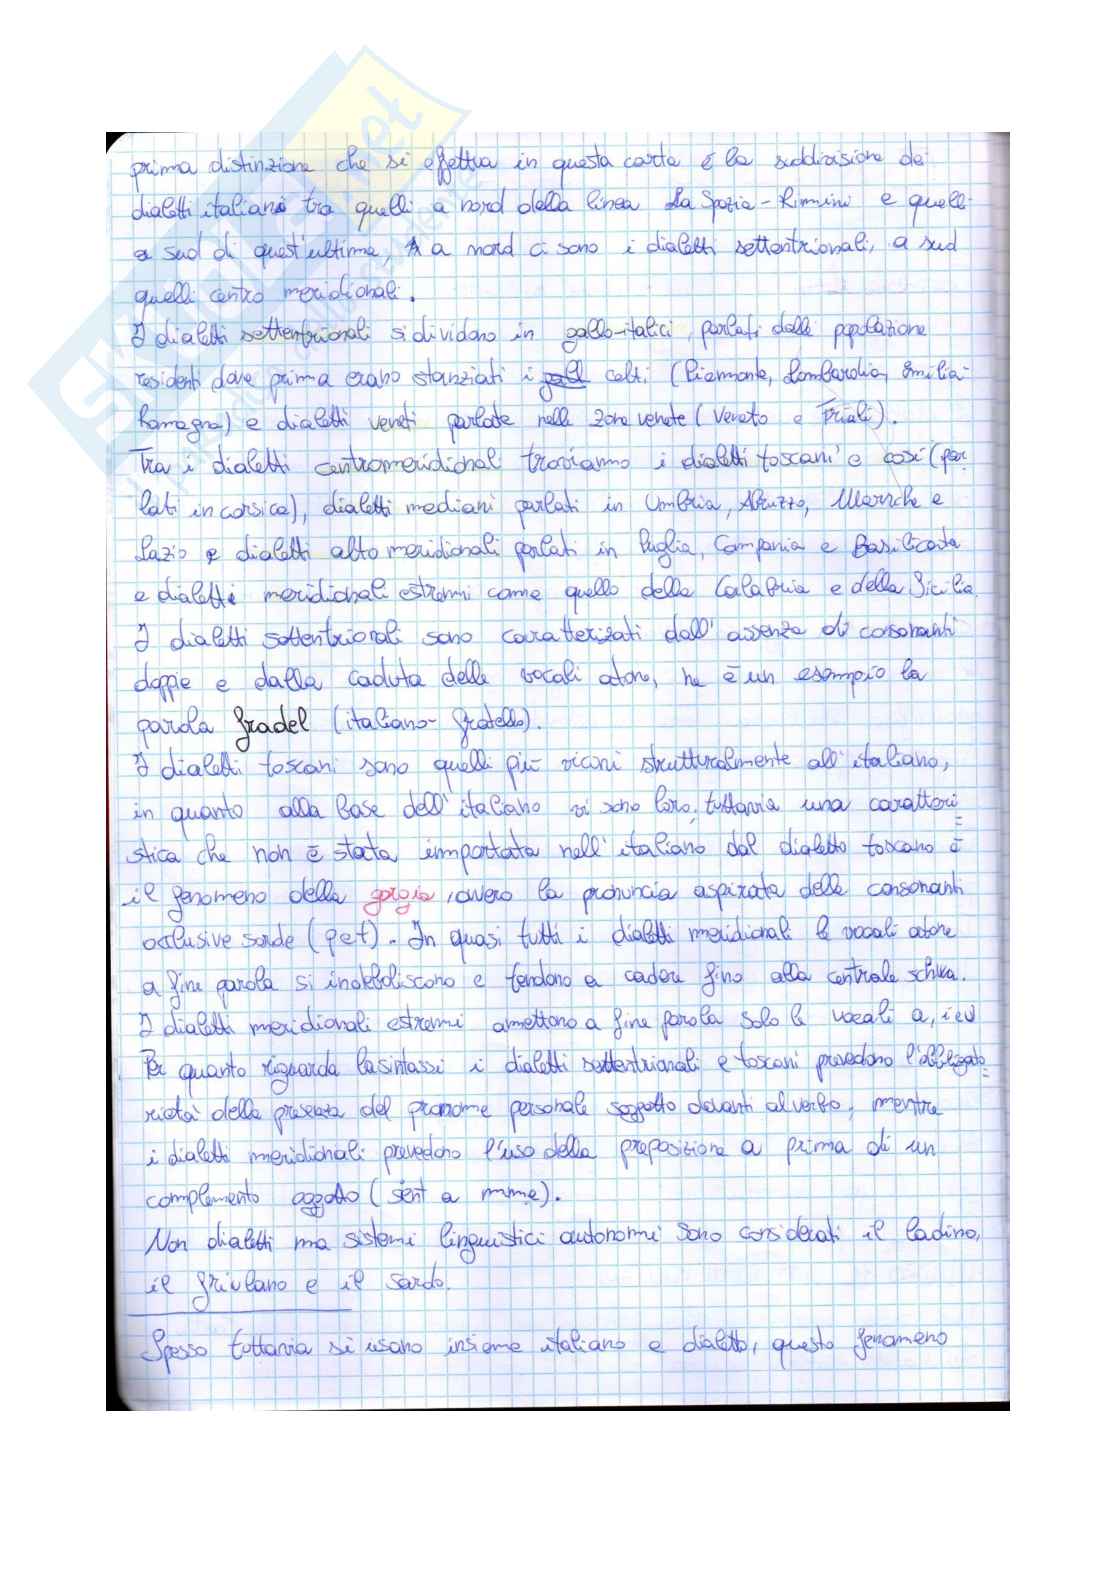 prima distinzione che si effettua in questa carta é la suddivisione dei
dialetti italiani tra quelli a nord della linea La Spezia-Rimini e quelli
a sud di quest'ultima, a nord ci sono i dialetti settentrionali, a sud
quelli centro meridionali.
I dialetti settentrionali si dividono in gallo-italici, parlati dalle popolazione
residenti dove prima erano stanziati i celti (Piemonte, Lombardia, Emilia-
Romagna) e dialetti veneti parlate nelle zone venete (Veneto e Friuli).
Tra i dialetti centromeridionali troviamo i dialetti toscani e corsi (par
lati in corsica), dialetti mediani parlati in Umbria, Abruzzo, Marche e
Lazio e dialetti alto meridionali parlati in Puglia, Campania e Basilicata
e dialetti meridionali estremi come quello della Calabria e della Sicilia.
I dialetti settentrionali sono caratterizati dall'assenza di consonanti
doppie e dalla caduta delle vocali atone, ne è un esempio la
parola fradel (italiano- fratello).
I dialetti toscani sono quelli più vicini strutturalmente all'italiano,
in quanto alla base dell'italiano vi sono loro, tuttavia una caratteri
stica che non è stata importata nell'italiano dal dialetto toscano è
il fenomeno della gorgia, ovvero la pronuncia aspirata delle consonanti
occlusive sorde (p e t). In quasi tutti i dialetti meridionali le vocali atone
a fine parola si indeboliscono e tendono a cadere fino alla centrale schwa.
I dialetti meridionali estremi amettono a fine parola solo le vocali a, i e u
Per quanto riguarda la sintassi i dialetti settentrionali e toscani prevedono l'obbligato
rietà della presenza del pronome personale soggetto davanti al verbo, mentre
i dialetti meridionali prevedono l'uso della preposizione a prima di un
complemento oggetto (sent a mme).
Non dialetti ma sistemi linguistici autonomi sono considerati il ladino,
il friulano e il sardo.
Spesso tuttavia si usano insieme italiano e dialetto, questo fenomeno